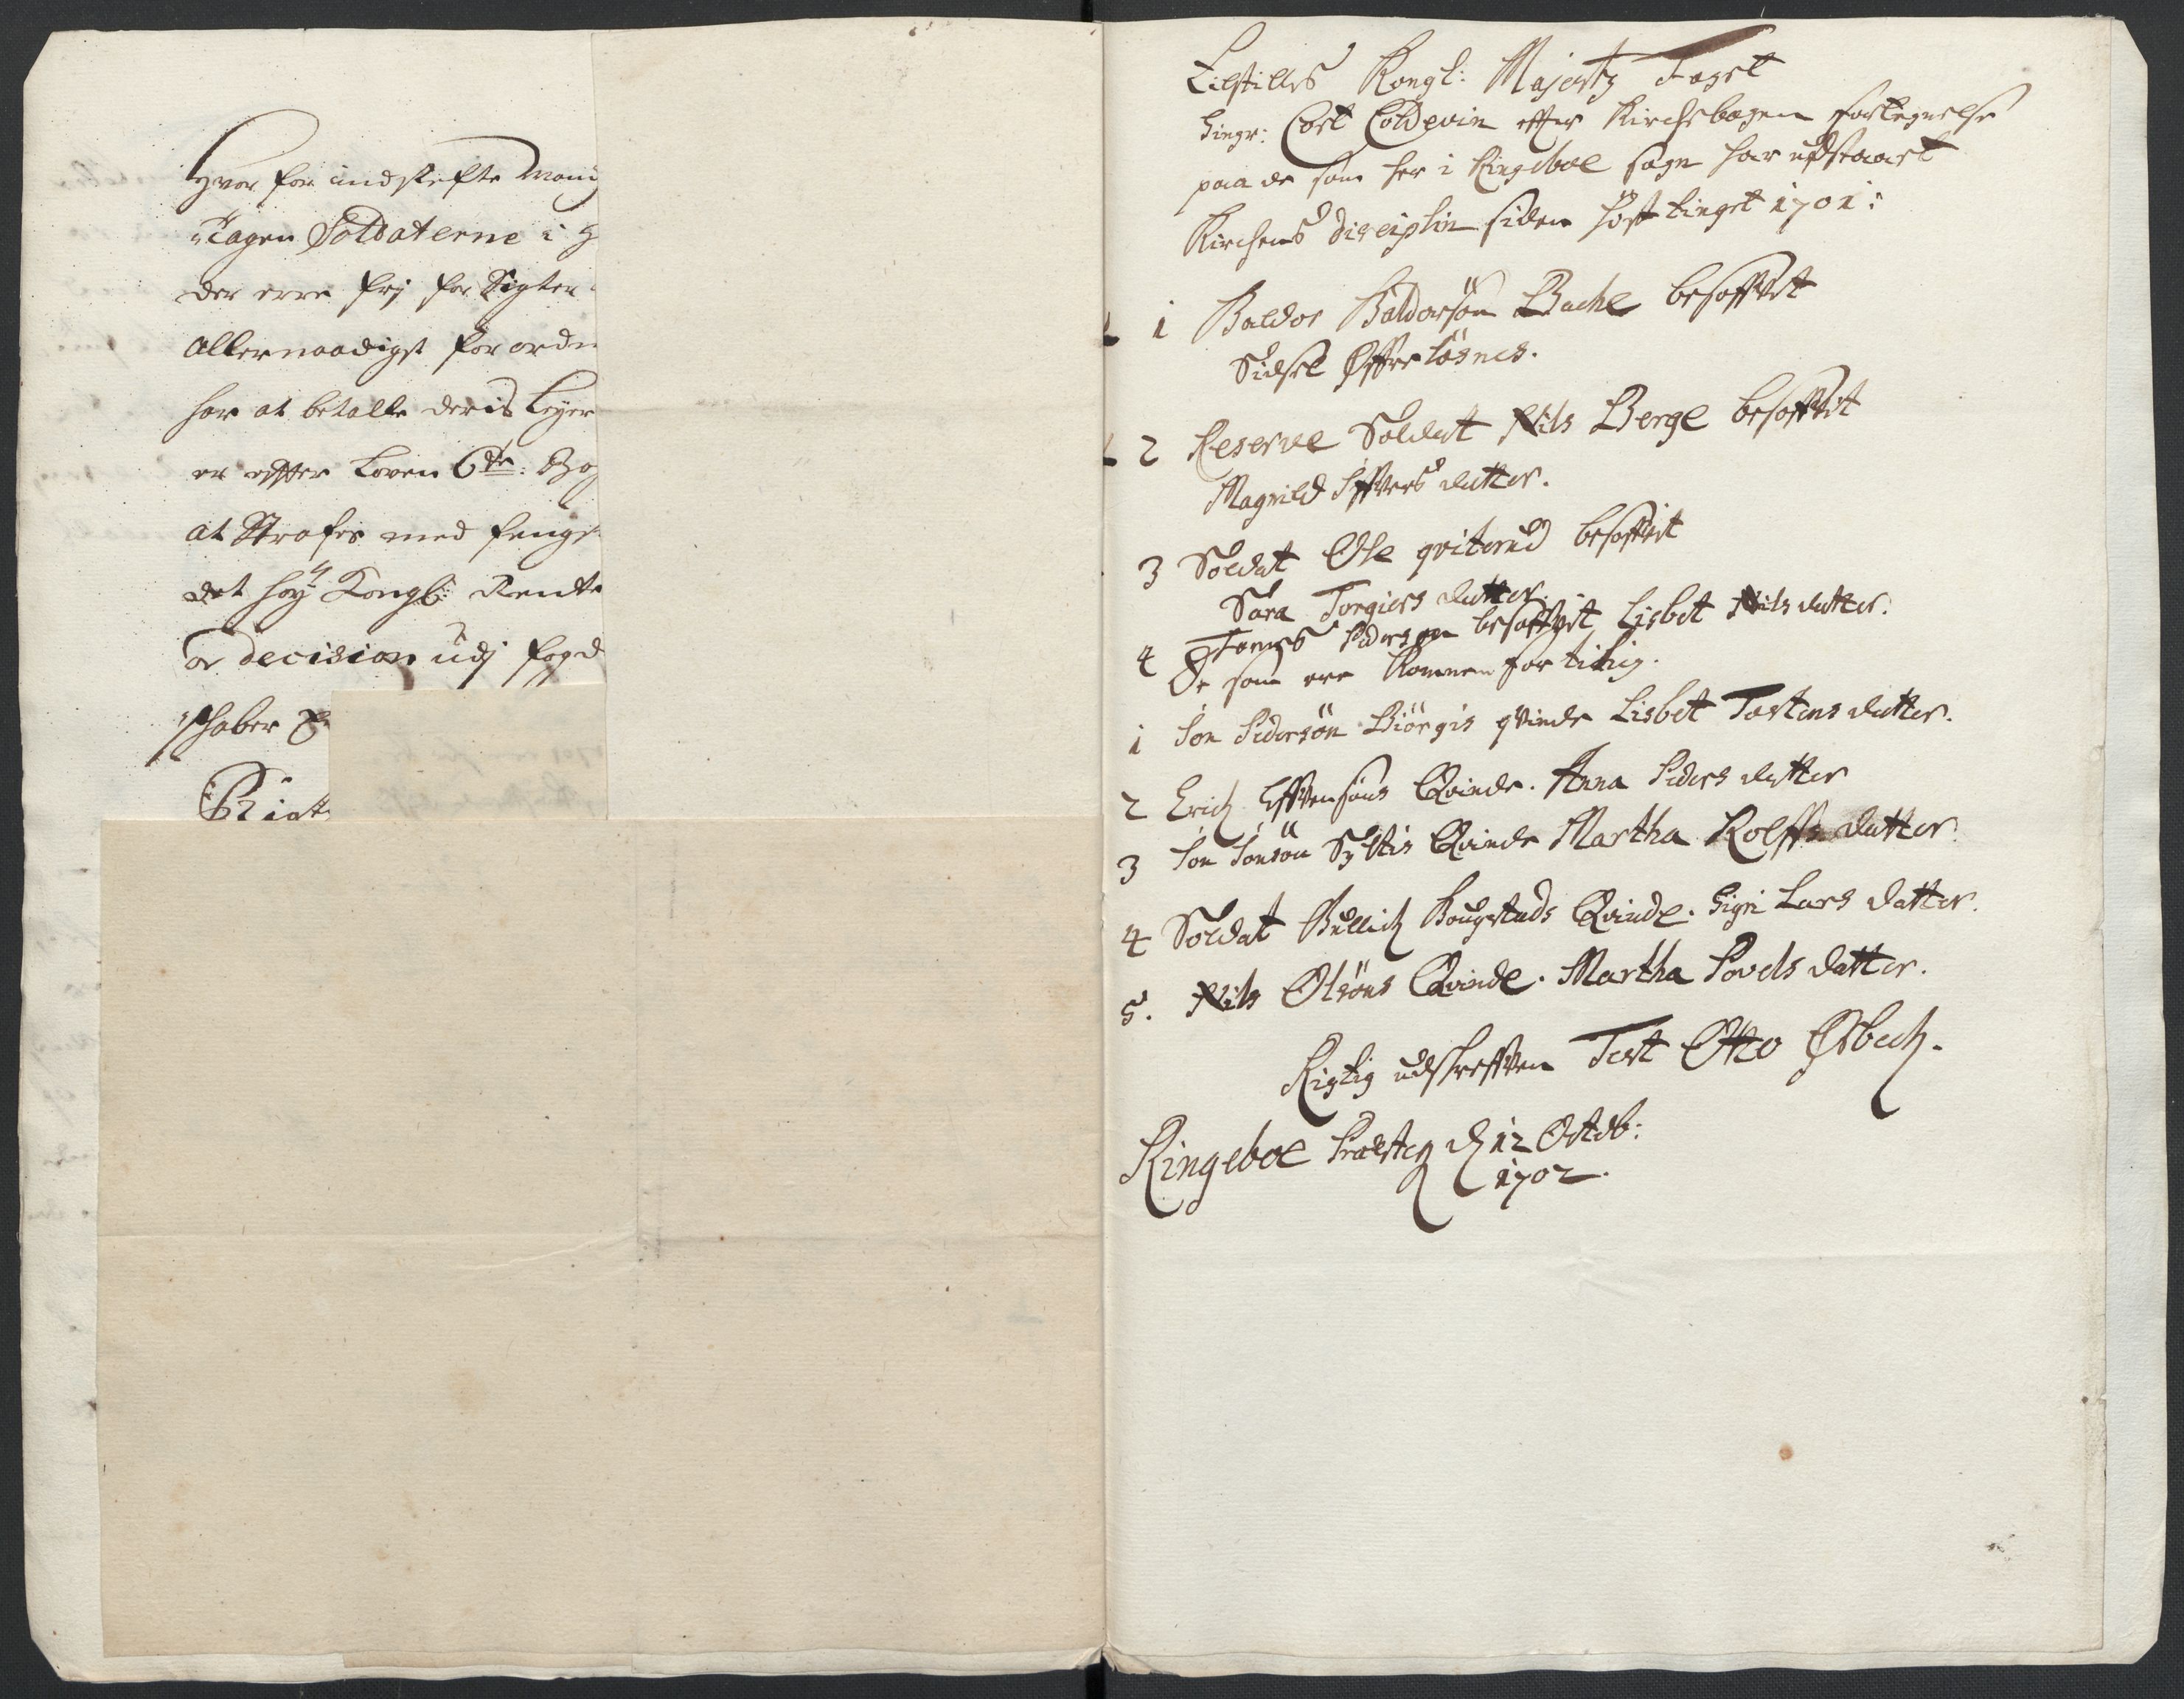 Hvor for indskefte
tagen Soldaterne i
der erre frj for Sigter
Allernaadigst forordn
har at betalle deris Leyer
er effter Loven 6te: Bog
at Straffes med fengs
det høy Kongl: Rendte
or decision udj fogd
schaber
Rigt
Tilstilles Kongl: Majestz Foget
Singr: Cort Coldevin effter Kirchebogen fortegnelse
paa de som her i Ringeboe sogn har udstaaet
Kirchens disciplin siden høste tinget 1701:
1 Baldor Baldorsøn Bache besoffvet
Sidsel Øffverløsnes.
2 Reserve Soldat Nils Berge besoffvet
Magnild Siffvers datter.
3 Soldat Ole qviterud besoffvet
Sara Torgiers datter.
4 Tomes Pedersøn besoffvet Lisbet Nils datter.
De som ere kommen for tilig.
1 Jon Pedersøn Biørgis qvinde Lisbet Tostens datter.
2 Erich Effvensøns Qvinde. Anna Peders datter
3 Jon Jonsøn Syltis Qvinde Martha Rolffs datter.
4 Soldat Gullich Bougstads Qvinde. Sigri Lars datter.
5. Nils Olsøns Qvinde. Martha Povels datter.
Rigtig udskreffven Test Otto Østbech.
Ringeboe Præsteg d 12 Octob:
1702.